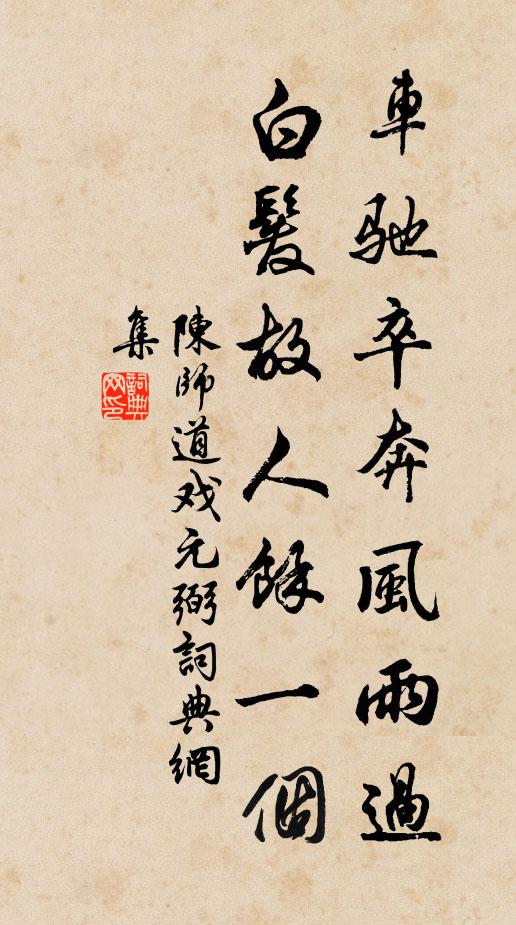 車馳卒奔風雨過
白髮故人餘一個
陳師道戏元弼詞典網
集
詞典
网印